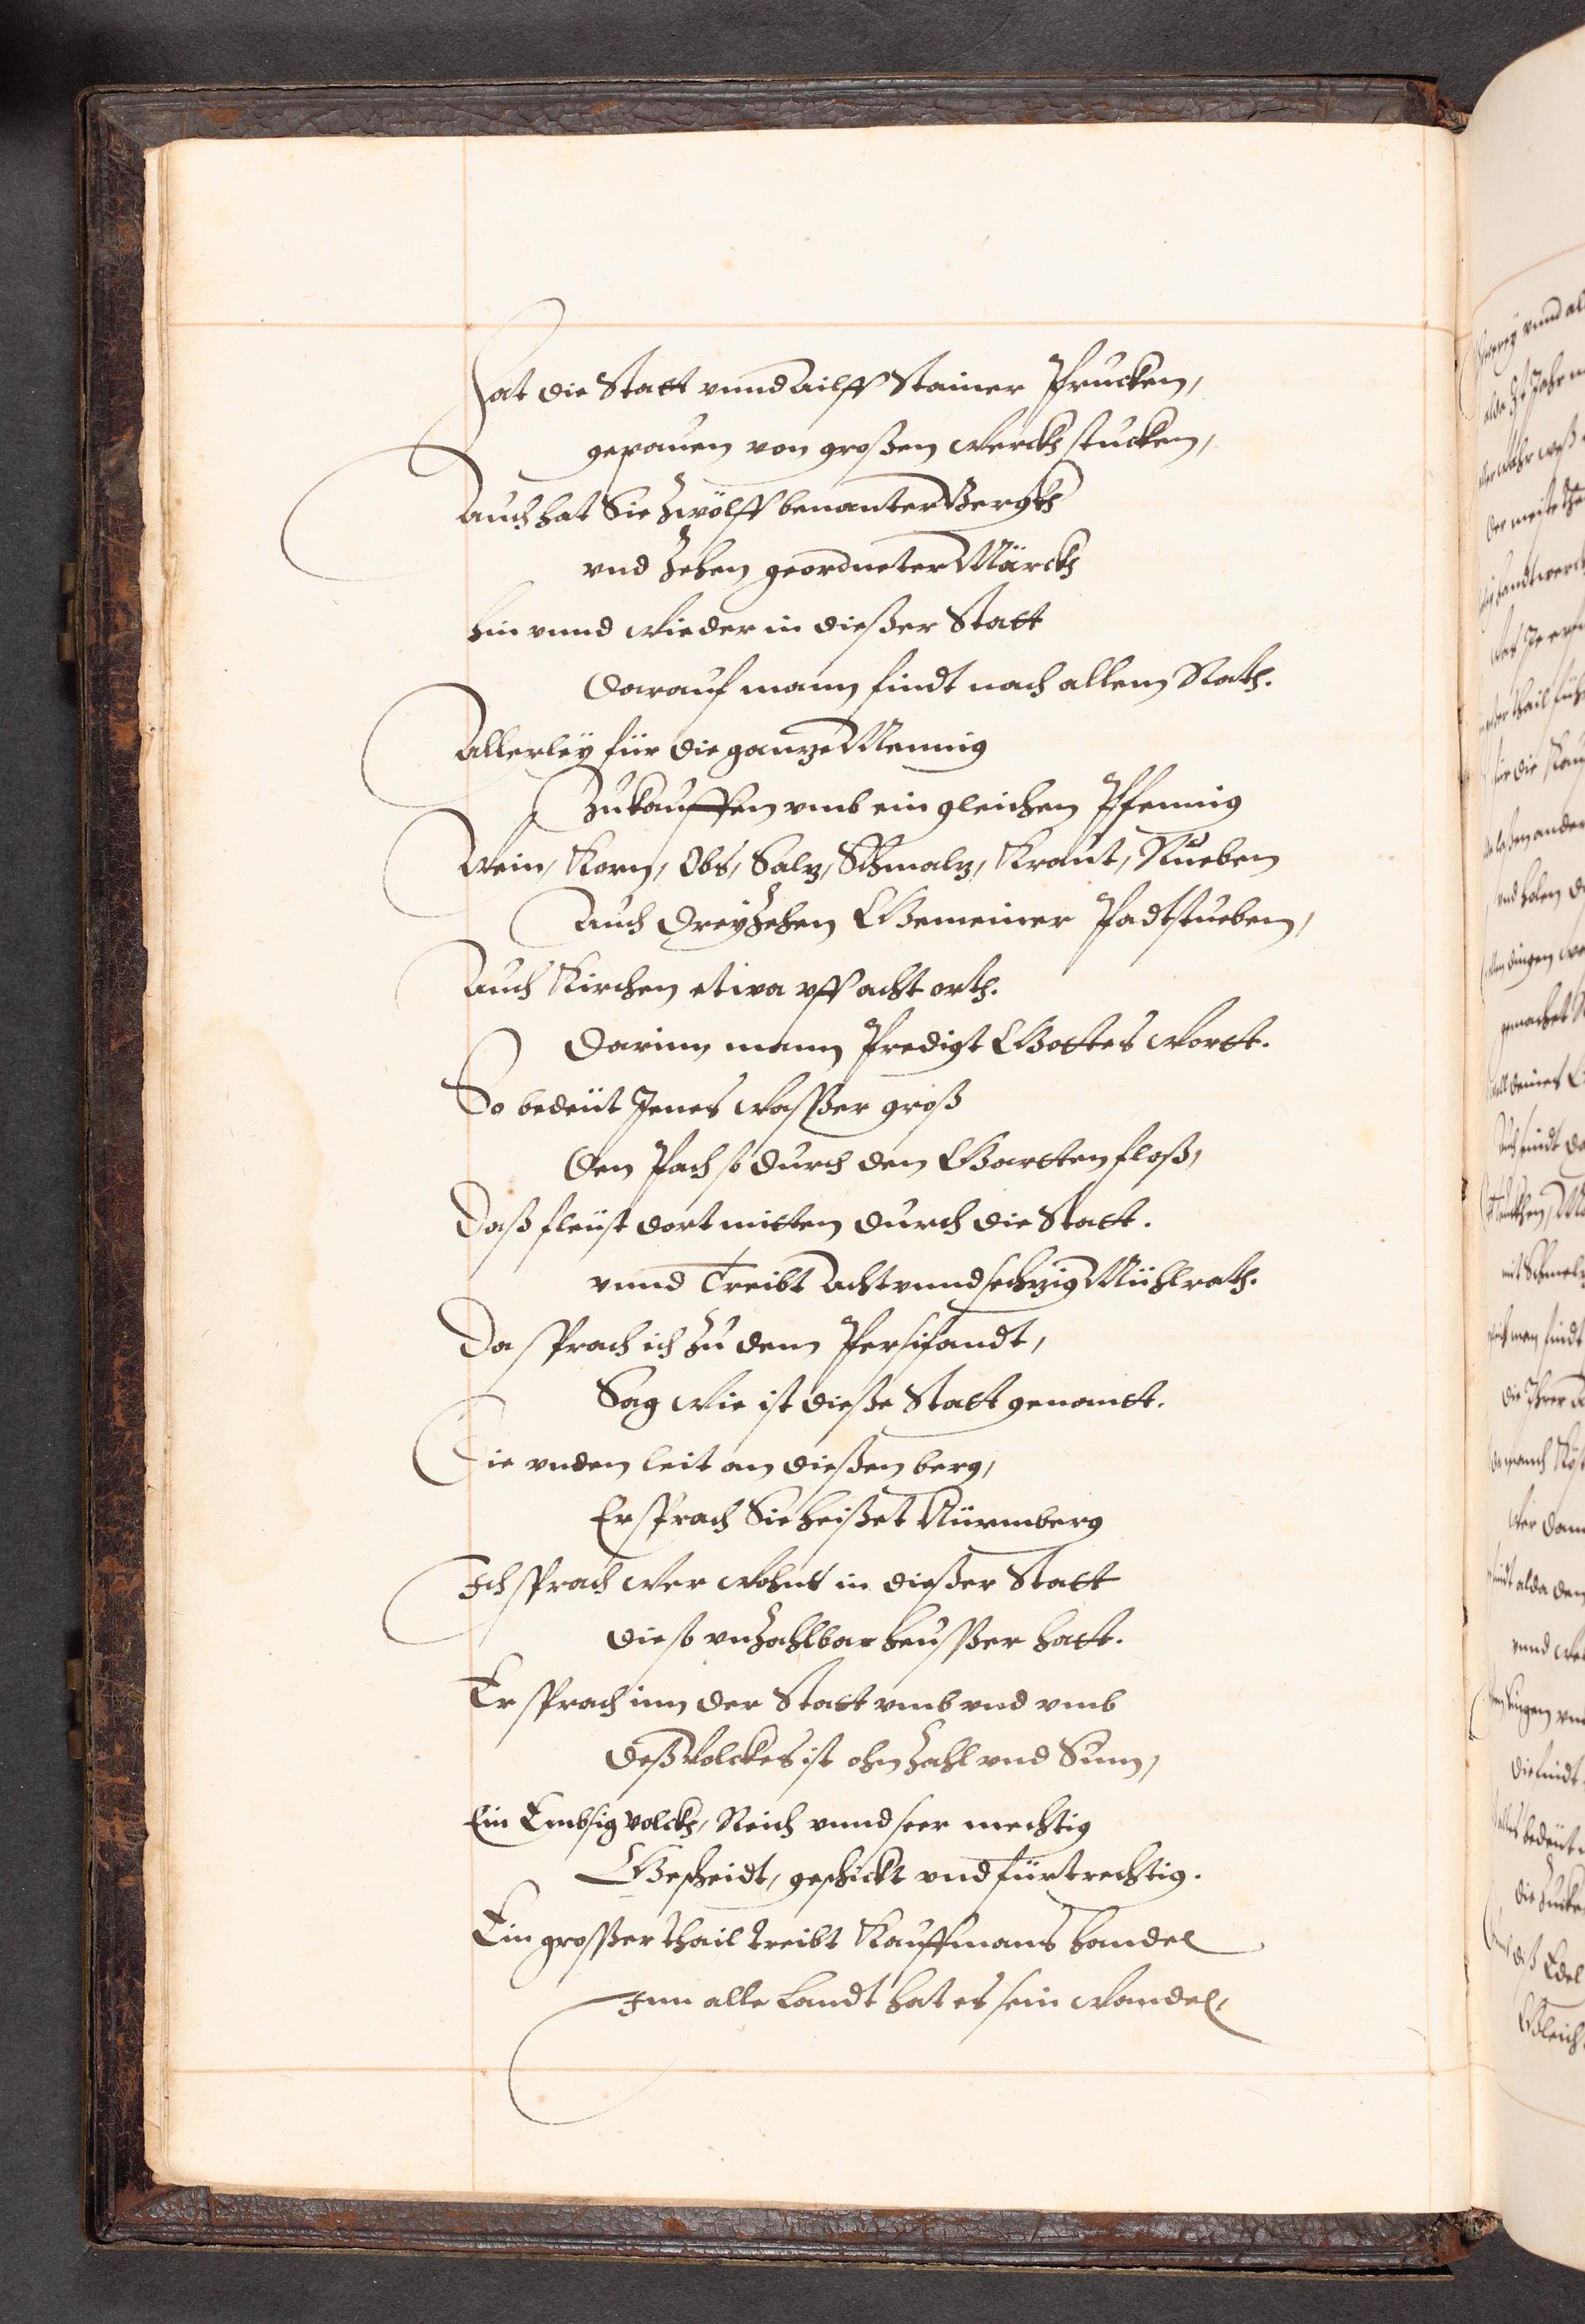 Hat die Statt vnnd ailff Stainer Prucken,
gepauen von großen werckh stucken,
Auch hat Sie zwölff benanter Bergkh
vnd zehen geordneter Märckh
hin vnnd wieder in dießer Statt
Darauf mann findt nach allem Rath.
Allerley für die gantze Mennig
Zukauffen vmb ein gleichen Pfennig
Wein, Korn, Obs, Saltz, Schmaltz, Kraut, Rueben
Auch dreyzehen Gemeiner Padtstueben,
Auch Kirchen etwa vff acht orth.
Darinn mann Predigt Gottes wortt.
So bedeüt Jenes wasßer groß
Den Pach so durch den Gartten floß,
Daß fleüst dort mitten durch die Statt.
vnnd Treibt Achtvnndsechtzig Mühlrath.
Da sprach ich zu dem Persifandt,
Sag wie ist dieße Statt genantt.
Die vnden leit an dießem berg,
Er sprach Sie heißet Nürmberg
Ich sprach wer wohnt in dießer Statt
die so vnzahlbar heusßer hatt.
Er sprach inn der Statt vmb vnd vmb
Deß Volckes ist ohn Zahl vnd Sum,
Ein Embsig volckh, Reich vnnd seer mechtig
Gescheidt, geschickt vnd fürtrechtig.
Ein großer thail treibt Kauffmans handel
Inn alle Landt hat es sein wandel,